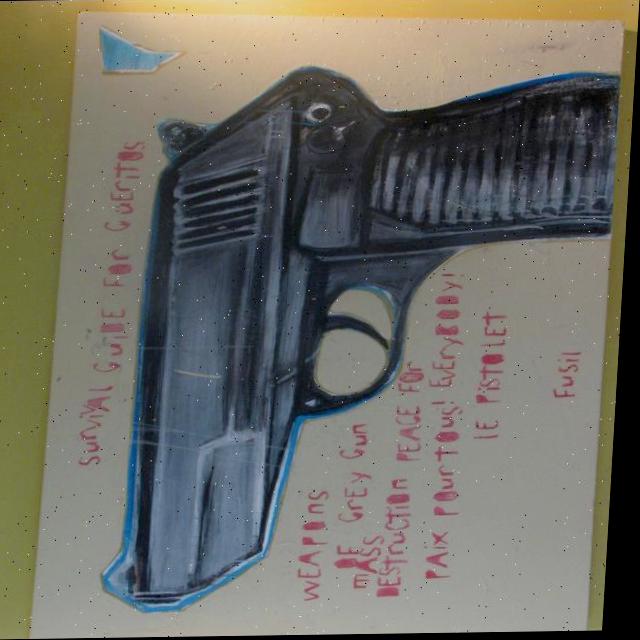 SURVIVAL GUIDE FOR GUERITOS
WEAPONS
DE GREY GUN
MASS
DESTRUCTION PEACE FOR
PAIX POUR TOUS! EVERYBODY!
LE PISTOLET
FUSIL